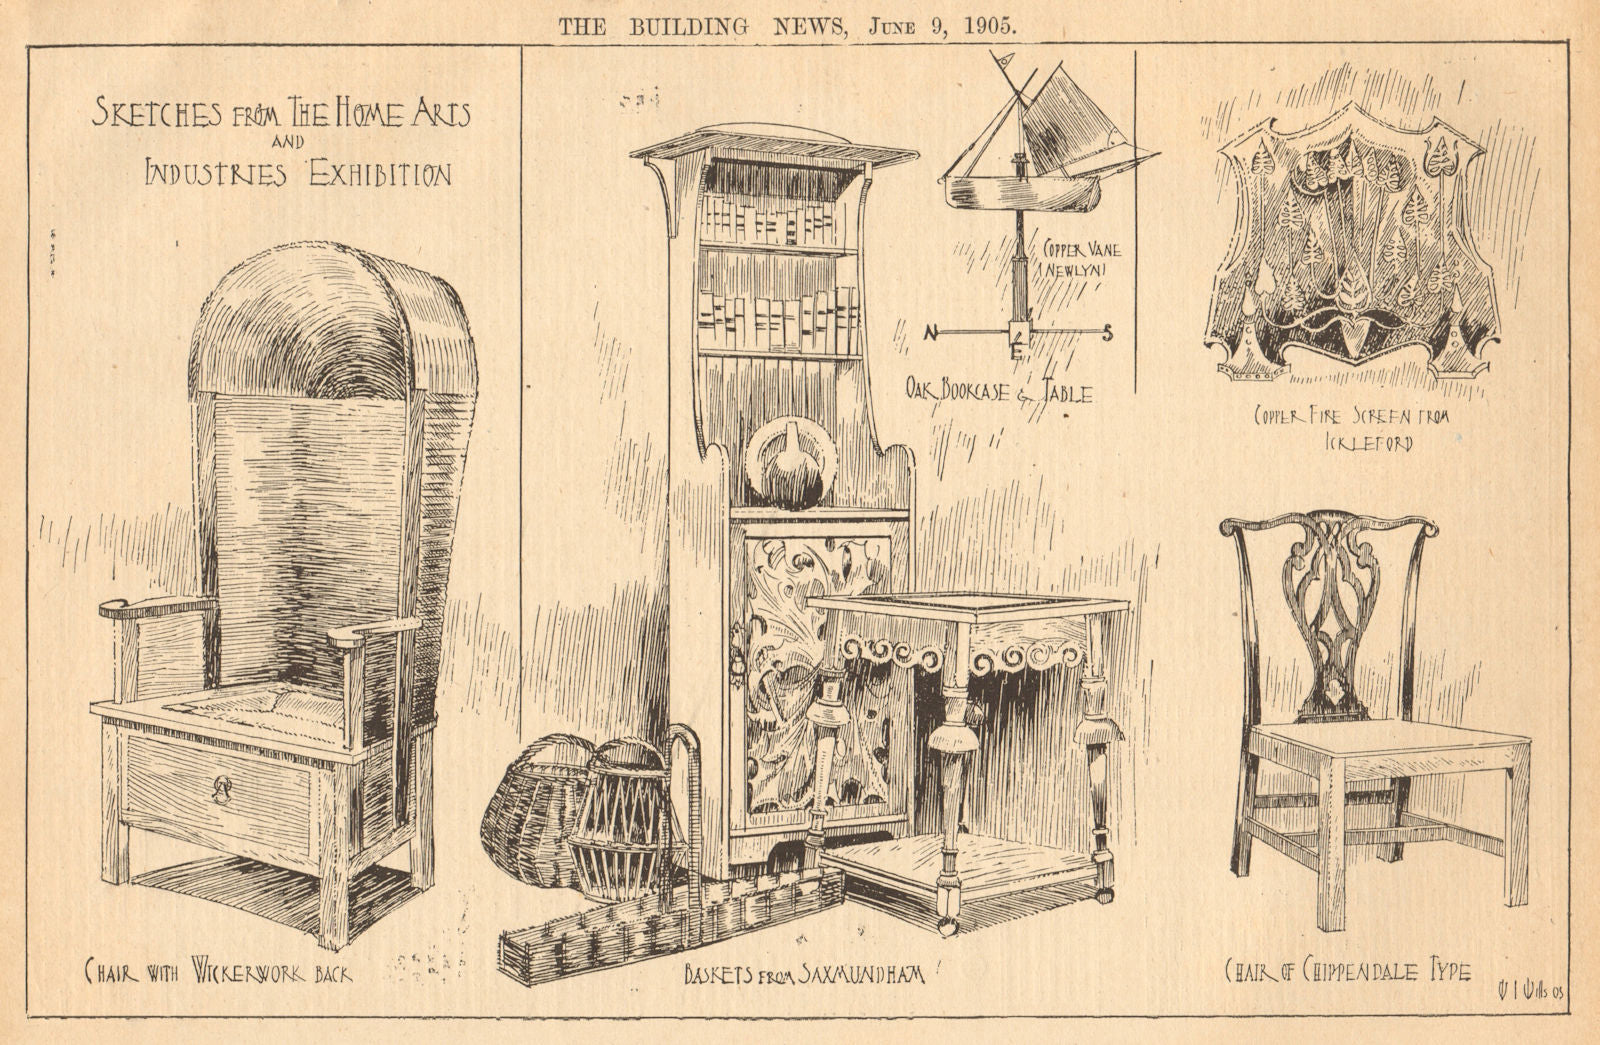 THE BUILDING NEWS, JUNE 9, 1905.
SKETCHES FROM THE HOME ARTS
AND
INDUSTRIES EXHIBITION
COPPER VANE
NEWLYN
N
S
E
OAK BOOKCASE & TABLE
COPPER FIRE SCREEN FROM
ICKLEFORD
CHAIR WITH WICKERWORK BACK
BASKETS FROM SAXMUNDHAM
CHAIR OF CHIPPENDALE TYPE
W I Wills 05